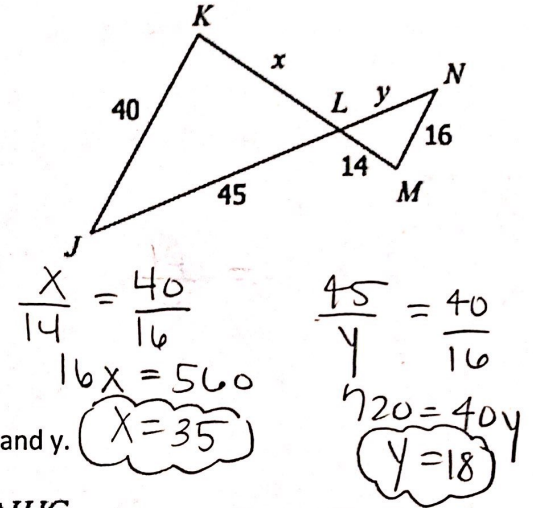 K
x
L y N
40
16
14
45
M
J
X/14 = 40/16
16X = 560
and y. X=35
45/y = 40/16
720 = 40y
y=18